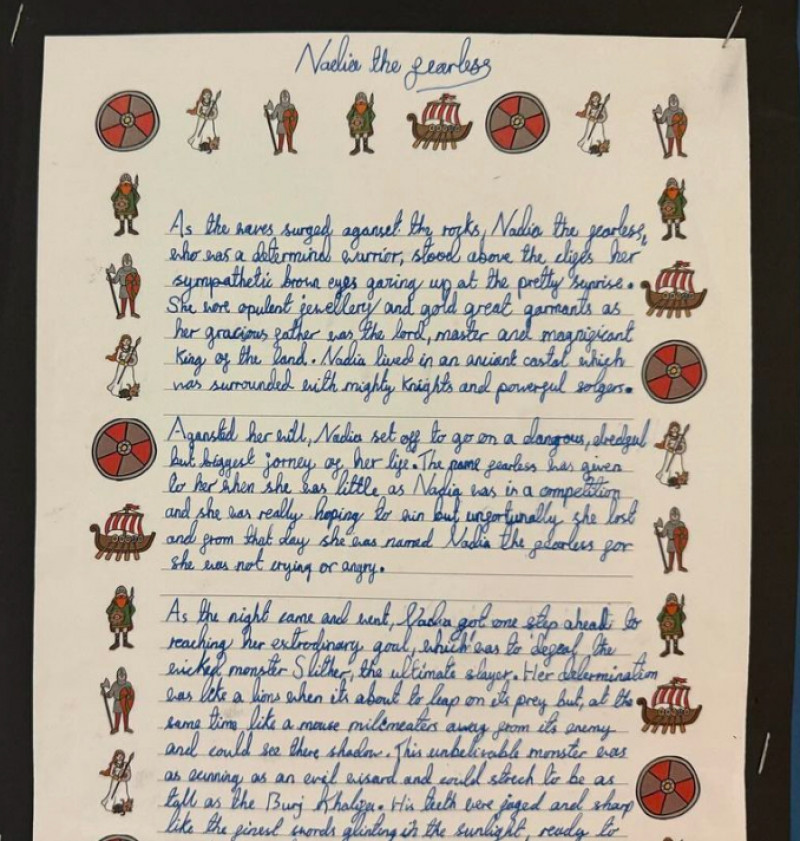 Nadia the fearless
As the waves surged aganset the rocks, Nadia the fearless,
who was a determind warrior, stood above the clifes her
sympathetic brown eyes gazing up at the pretty suprise.
She wore opulent jewellery and gold great garmants as
her gracious father was the lord, master and magnificant
king of the land. Nadia lived in an anciant castal which
was surrounded with mighty knights and powerful solgers.
Agansted her will, Nadia set off to go on a dangous, dredful
but biggest jorney of her life. The name fearless was given
to her when she was little as Nadia was in a competition
and she was really hoping to win but unfortunally she lost
and from that day she was named Nadia the fearless for
she was not crying or angry.
As the night came and went, Nadia got one step ahead to
reaching her extrodinary goal, which was to defeat the
wicked monster Slither, the ultimate slayer. Her determination
was like a lions when its about to leap on its prey but, at the
same time like a mouse milemeaters away from its enemy
and could see there shadow. This unbelivable monster was
as cunning as an evil wisard and could strech to be as
tall as the Burj Khalifa. His teeth were jaged and sharp
like the finest swords glinting in the sunlight, ready to